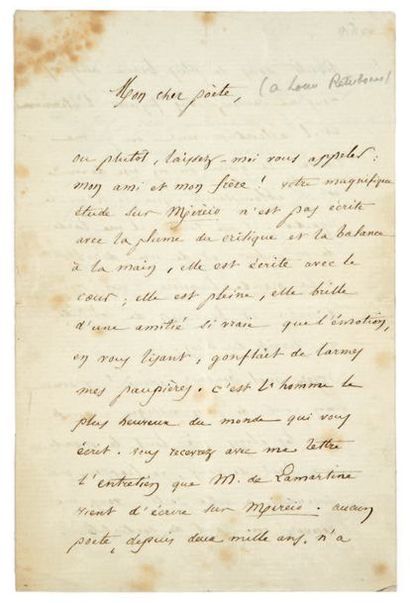 Mon cher poète,
(a Louis Ratisbonne)
ou plutot, laissez-moi vous appeler:
mon ami et mon frère! votre magnifique
étude sur Mirèio n'est pas écrite
avec la plume du critique et la balance
à la main, elle est écrite avec le
cœur; elle est pleine, elle brille
d'une amitié si vraie que l'émotion,
en vous lisant, gonflait de larmes
mes paupières. c'est l'homme le
plus heureux du monde qui vous
écrit. vous recevez avec ma lettre
l'entretien que M. de Lamartine
vient d'écrire sur Mirèio. aucun
poète, depuis deux mille ans, n'a